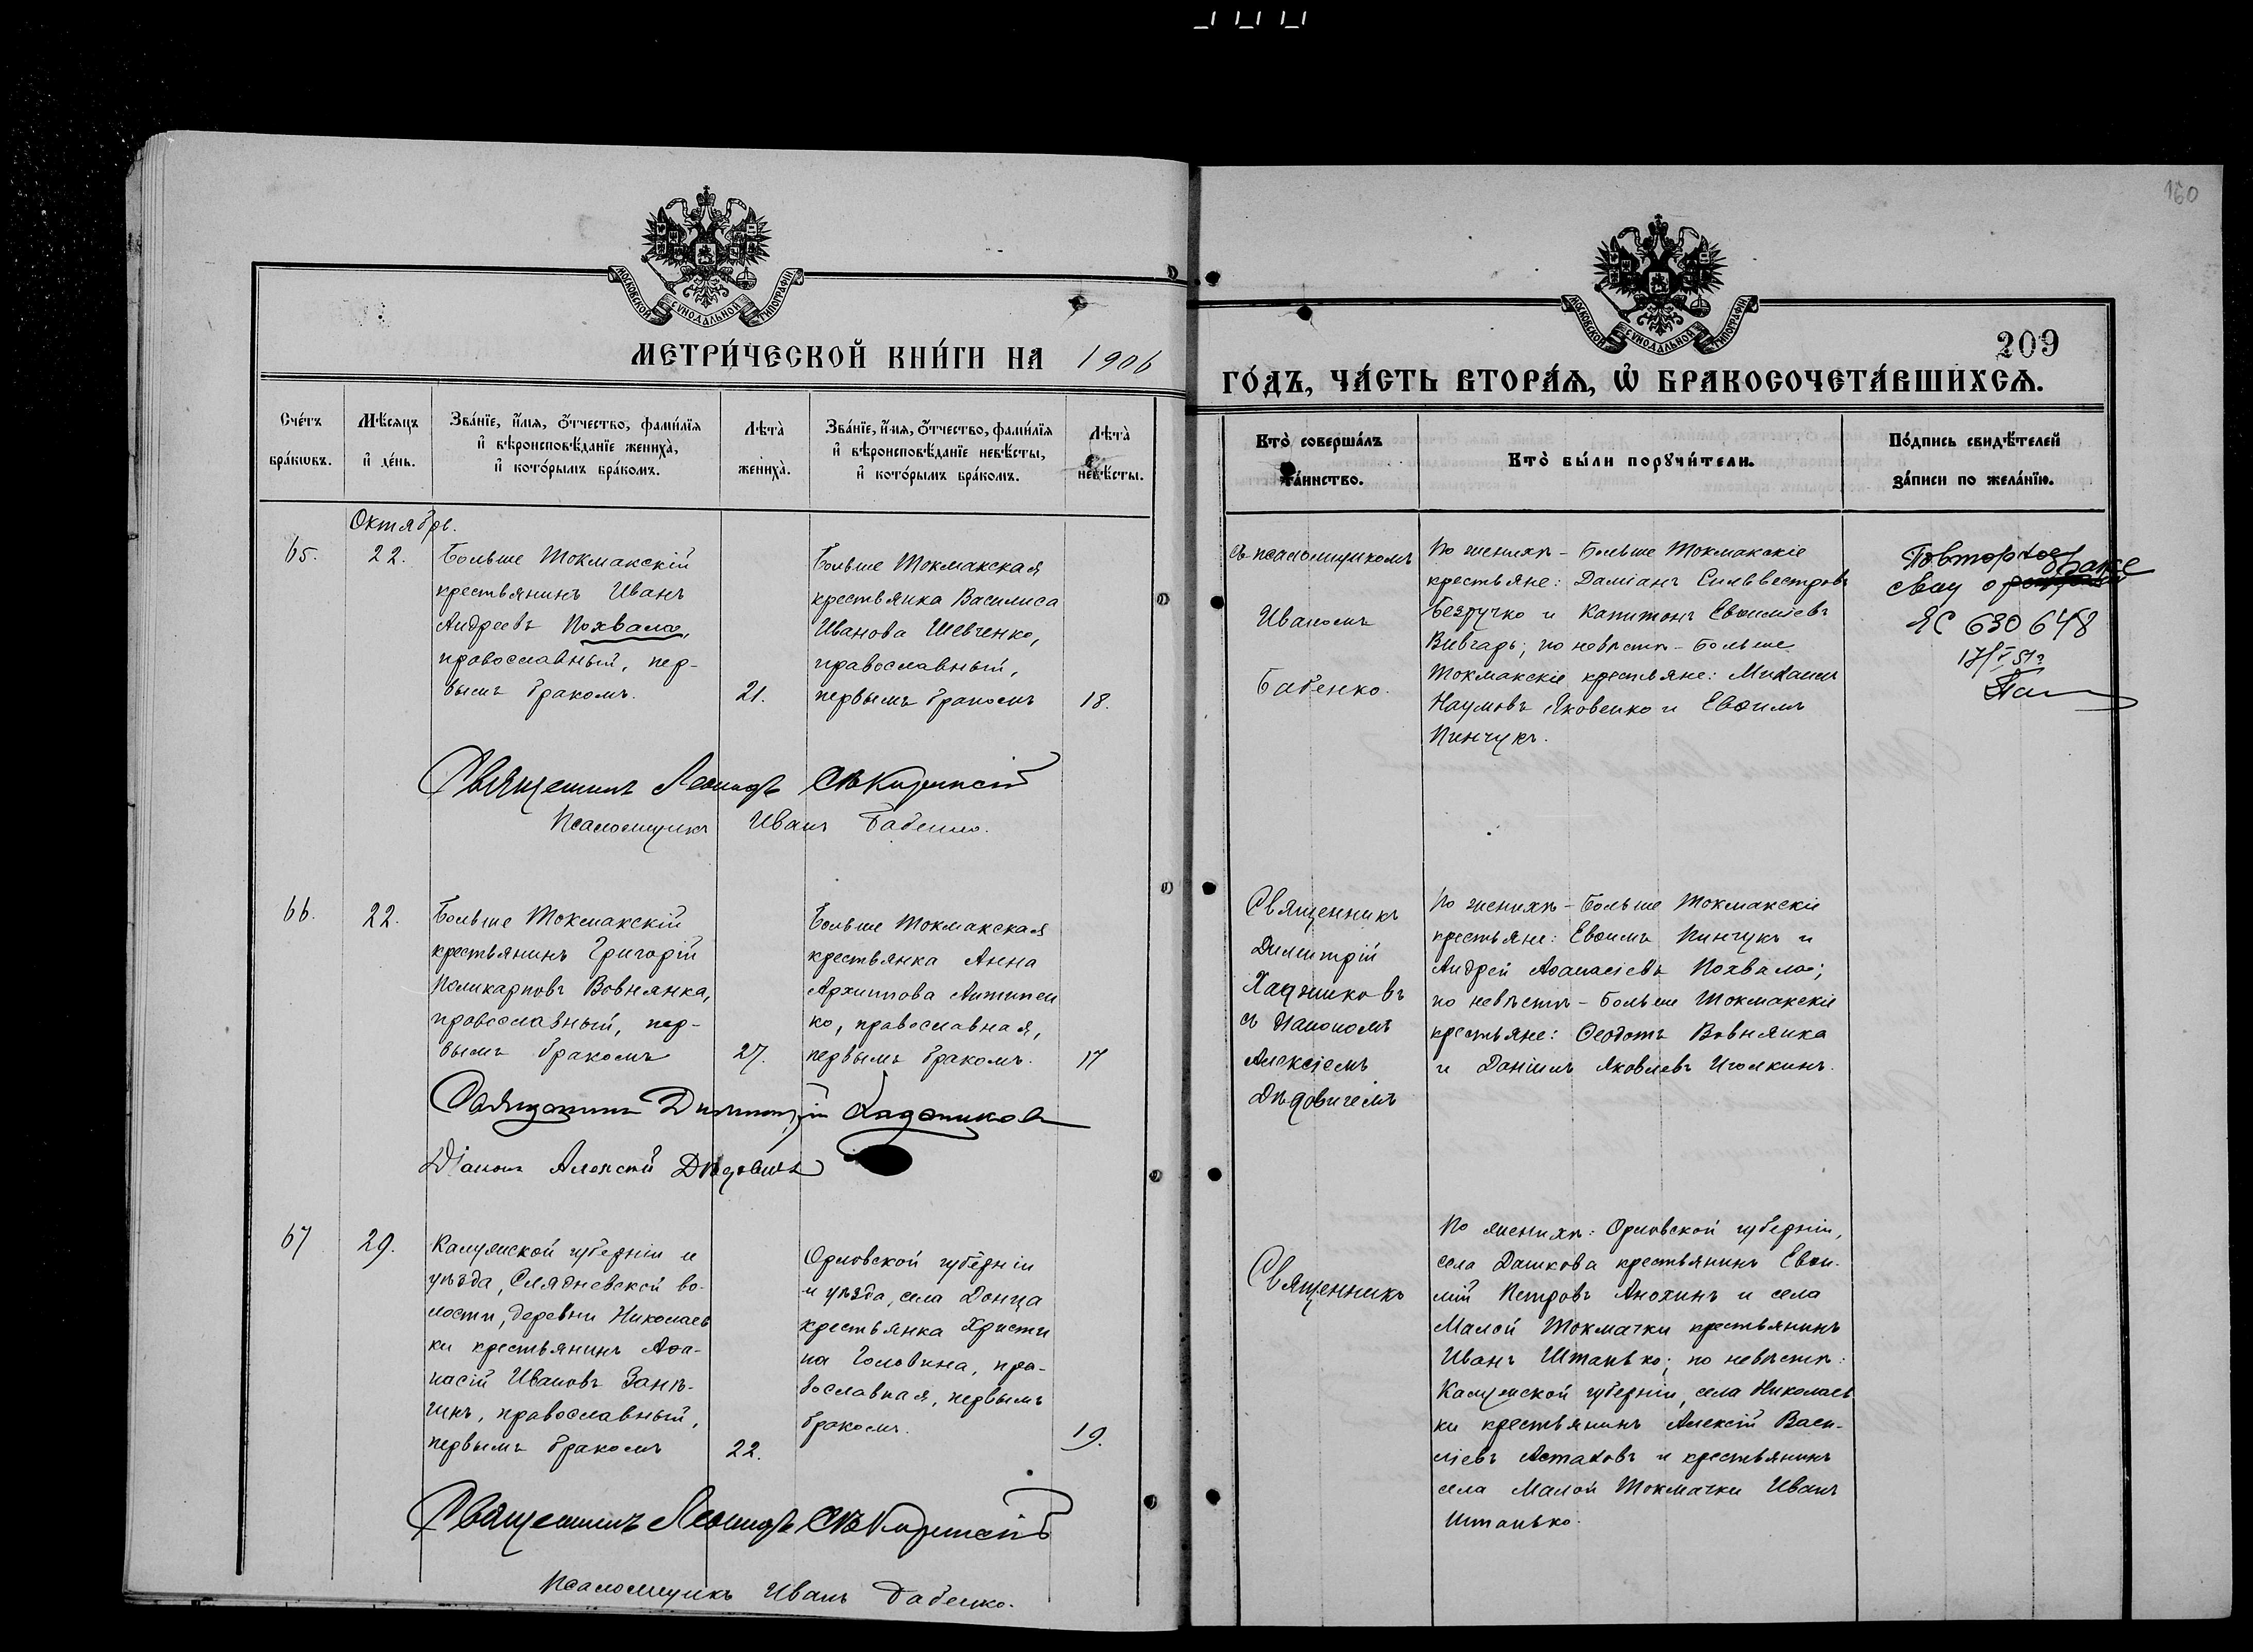 160
МОСКОВСКОЙ СѴНОДАЛЬНОЙ ТИПОГРАФІИ
МОСКОВСКОЙ СѴНОДАЛЬНОЙ ТИПОГРАФІИ
209
МЕТРИ́ЧЕСКОЙ КНИ́ГИ НА 1906
ГО́ДЪ, ЧА́СТЬ ВТОРА́Ѧ, Ѽ БРАКОСОЧЕТА́ВШИХСѦ.
Сче́тъ
бра́кѡвъ.
Мѣ́сѧцъ
и҆ де́нь.
Зва́нїе, и҆́мѧ, ѻ҆́тчество, фами́лїѧ
и҆ вѣроисповѣ́данїе жениха̀,
и҆ кото́рымъ бра́комъ.
Лѣта̀
жениха̀.
Зва́нїе, и҆́мѧ, ѻ҆́тчество, фами́лїѧ
и҆ вѣроисповѣ́данїе невѣ́сты,
и҆ кото́рымъ бра́комъ.
Лѣта̀
невѣ́сты.
Кто̀ соверша́лъ
та́инство.
Кто̀ бы́ли порꙋчи́тели.
По́дпись свидѣ́телей
за́писи по жела́нїю.
Октябрь.
65.
22.
Больше Токмакскій
крестьянинъ Иванъ
Андреевъ Похвала,
православный, пер-
вымъ бракомъ.
21.
Больше Токмакская
крестьянка Василиса
Иванова Шевченко,
православный,
первымъ бракомъ
18.
съ псаломщикомъ
Иваномъ
Бабенко.
По женихѣ - Больше Токмакскіе
крестьяне: Даміанъ Сильвестровъ
Безручко и Капитонъ Евѳиміевъ
Вивчарь; по невѣстѣ - Больше
Токмакскіе крестьяне: Михаилъ
Наумовъ Яковенко и Евѳимъ
Пинчукъ.
браке
свид о
ЯС 630648
17/V 51г
Священникъ Леонидъ
Псаломщикъ Иванъ Бабенко.
66.
22.
Больше Токмакскій
крестьянинъ Григорій
Поликарповъ Вовнянка,
православный, пер-
вымъ бракомъ
27.
Больше Токмакская
крестьянка Анна
Архипова Антипен
ко, православная,
первымъ бракомъ.
17
Священникъ
Димитрій
Хаджиковъ
съ діакономъ
Алексіемъ
Дѣдовичемъ
По женихѣ - Больше Токмакскіе
крестьяне: Евѳимъ Пинчукъ и
Андрей Аѳанасіевъ Похвала;
по невѣстѣ - Больше Токмакскіе
крестьяне: Ѳеодотъ Вовнянка
и Даніилъ Яковлевъ Иголкинъ.
Священникъ Димитрій Хаджиковъ
Діаконъ Алексій Дѣдовичъ
67
29.
Калужской губерніи и
уѣзда, во-
лости, деревни Николаев
ки крестьянинъ Аѳа-
насій Ивановъ Занѣ-
гинъ, православный,
первымъ бракомъ
22.
Орловской губерніи
и уѣзда, села Донца
крестьянка Христи
на Головина, пра-
вославная, первымъ
бракомъ.
19.
Священникъ
По женихѣ: Орловской губерніи,
села Дашкова крестьянинъ Евѳи-
мій Петровъ Анохинъ и села
Малой Токмачки крестьянинъ
Иванъ Штанько; по невѣстѣ:
Калужской губерніи, села Николаев
ки крестьянинъ Алексій Васи-
ліевъ Астаховъ и крестьянинъ
села Малой Токмачки Иванъ
Штанько.
Священникъ Леонидъ
Псаломщикъ Иванъ Бабенко.